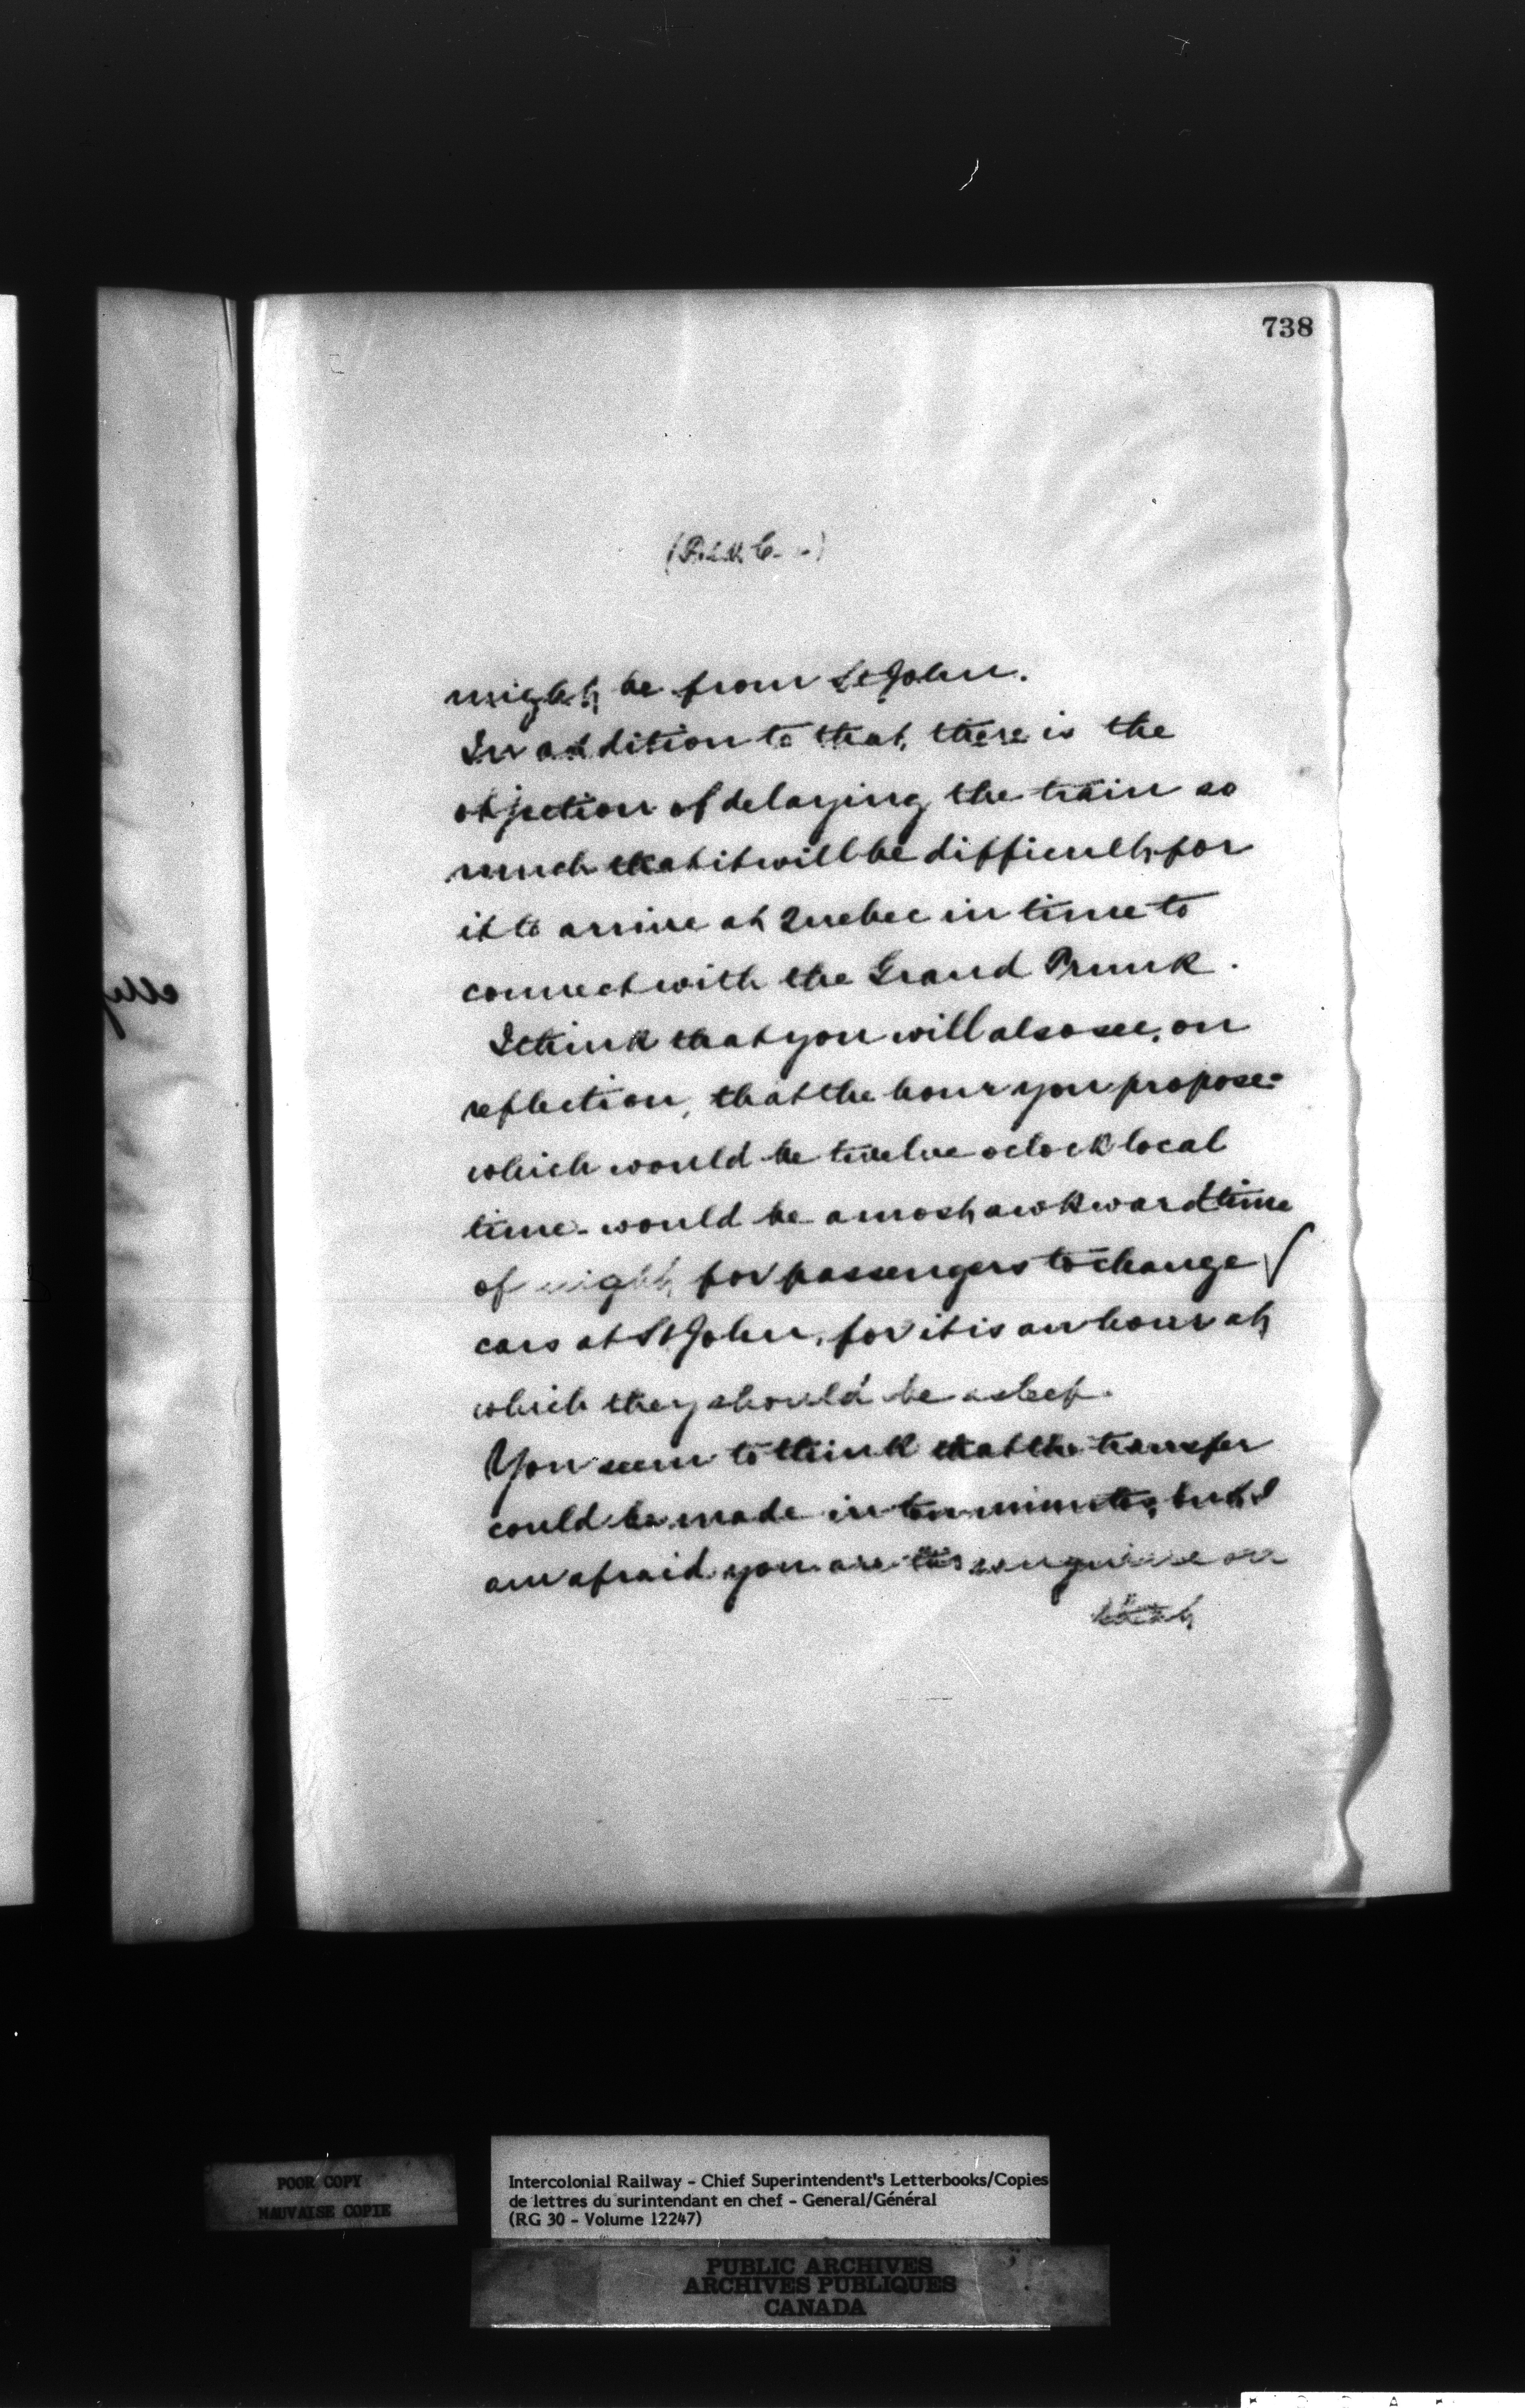 738
might be from St John.
In addition to that, there is the
objection of delaying the train so
much that it will be difficult for
it to arrive at Quebec in time to
connect with the Grand Trunk.
I think that you will also see, on
reflection, that the hour you propose-
which would be twelve oclock local
time- would be a most awkward time
of night for passengers to change
cars at St John, for it is an hour at
which they should be asleep.
You seem to think that the transfer
could be made in ten minutes, but I
am afraid you are too sanguine on
that
POOR COPY
MAUVAISE COPIE
Intercolonial Railway - Chief Superintendent's Letterbooks/Copies
de lettres du surintendant en chef - General/Général
(RG 30 - Volume 12247)
PUBLIC ARCHIVES
ARCHIVES PUBLIQUES
CANADA